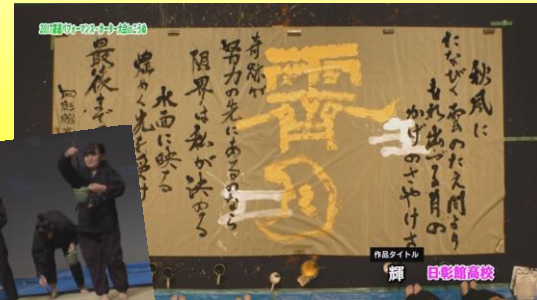 秋風に
たなびく雲のたえ間より
もれ出づる月の
かげのさやけさ
霽月
奇跡が
努力の先にあるのなら
限界は私が決める
水面に映る
煌めく先を
最後まで
作品タイトル
輝
日彰館高校